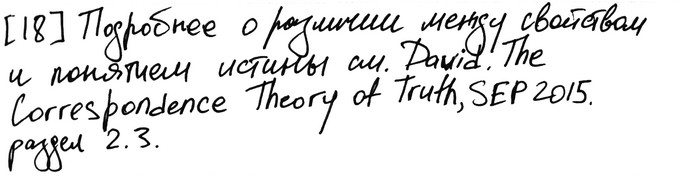 [18] Подробнее о различии между свойством
и понятием истины см. David. The
Correspondence Theory of Truth, SEP 2015.
раздел 2.3.